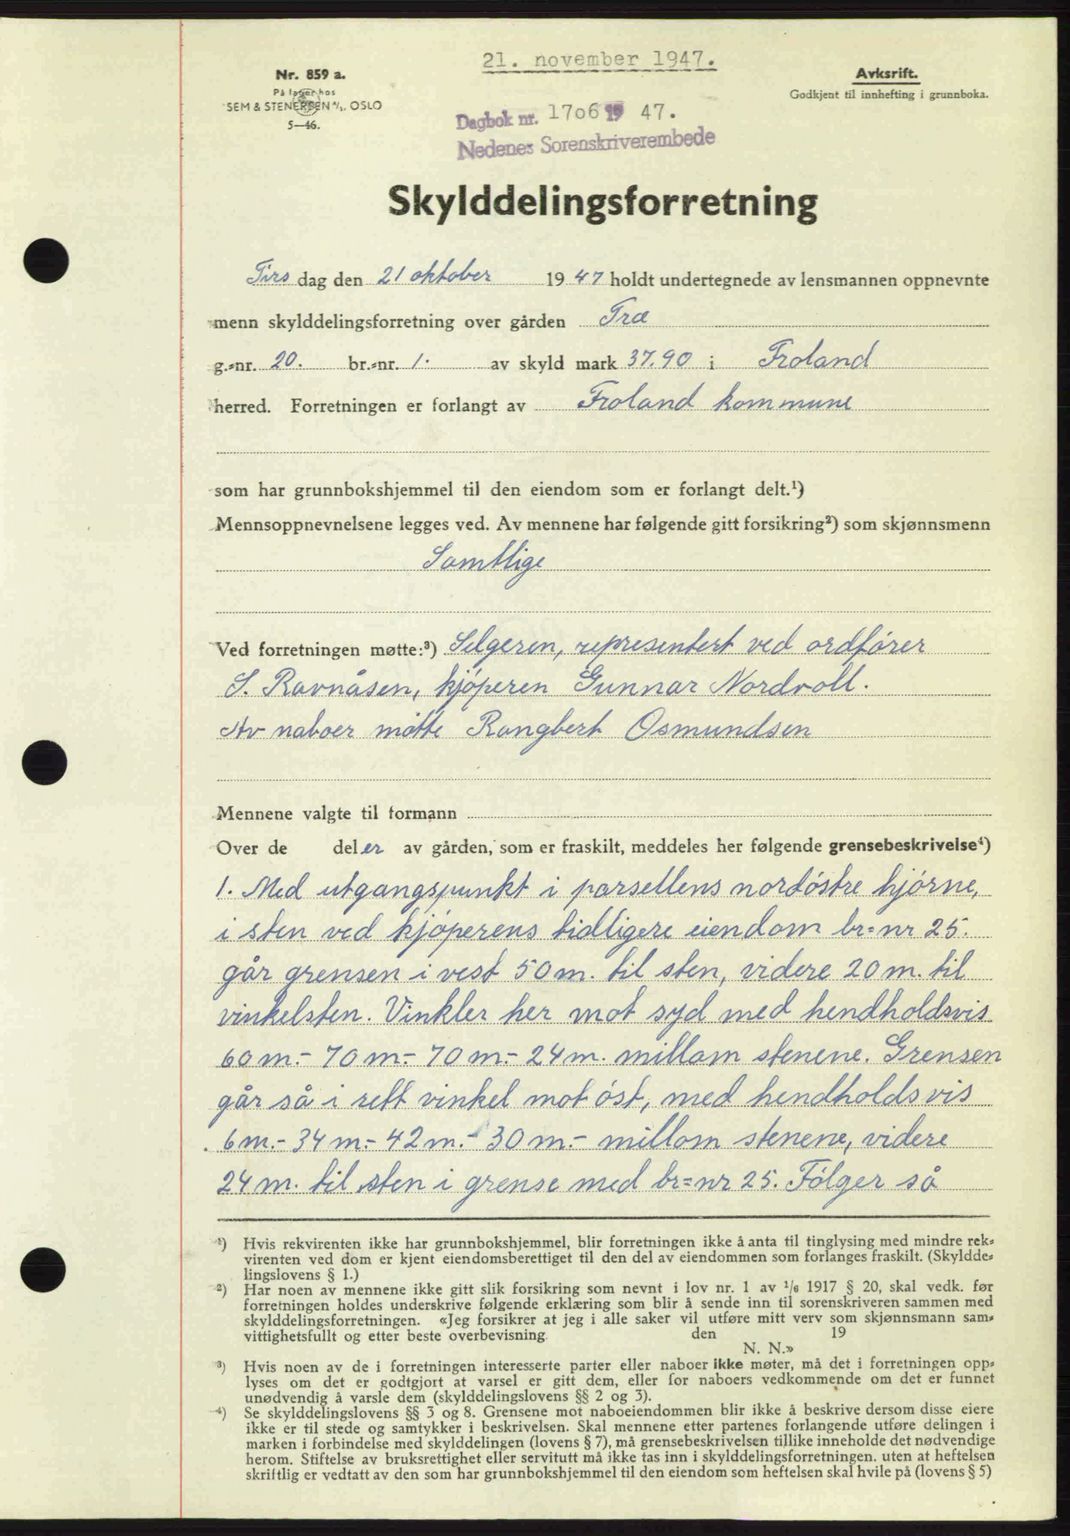 21. november 1947.
Nr. 859 a.
På lager hos
SEM & STENERSEN A/S, OSLO
5—46.
Avskrift.
Godkjent til innhefting i grunnboka.
Dagbok nr. 1706 19 47.
Nedenes Sorenskriverembede
Skylddelingsforretning
Tirs dag den 21 oktober 19 47 holdt undertegnede av lensmannen oppnevnte
menn skylddelingsforretning over gården Træ
g.-nr. 20. br.-nr. 1. av skyld mark 37.90 i Froland
herred. Forretningen er forlangt av Froland kommune
som har grunnbokshjemmel til den eiendom som er forlangt delt.¹)
Mennsoppnevnelsene legges ved. Av mennene har følgende gitt forsikring²) som skjønnsmenn
Samtlige
Ved forretningen møtte:³) Selgeren, representert ved ordfører
S. Ravnåsen, kjøperen Gunnar Nordvoll.
Av naboer møtte Rangbert Osmundsen
Mennene valgte til formann
Over de deler av gården, som er fraskilt, meddeles her følgende grensebeskrivelse⁴)
1. Med utgangspunkt i parsellens nordøstre hjørne,
i sten ved kjøperens tidligere eiendom br=nr 25.
går grensen i vest 50 m. til sten, videre 20 m. til
vinkelsten. Vinkler her mot syd med hendholdsvis
60 m.- 70 m.- 70 m.- 24 m. millom stenene. Grensen
går så i rett vinkel mot øst, med hendholdsvis
6 m.- 34 m.- 42 m.- 30 m.- millom stenene, videre
24 m. til sten i grense med br=nr 25. Følger så
¹) Hvis rekvirenten ikke har grunnbokshjemmel, blir forretningen ikke å anta til tinglysing med mindre rek-
virenten ved dom er kjent eiendomsberettiget til den del av eiendommen som forlanges fraskilt. (Skyldde-
lingslovens § 1.)
²) Har noen av mennene ikke gitt slik forsikring som nevnt i lov nr. 1 av 1/6 1917 § 20, skal vedk. før
forretningen holdes underskrive følgende erklæring som blir å sende inn til sorenskriveren sammen med
skylddelingsforretningen. «Jeg forsikrer at jeg i alle saker vil utføre mitt verv som skjønnsmann sam-
vittighetsfullt og etter beste overbevisning. den 19
N. N.»
³) Hvis noen av de i forretningen interesserte parter eller naboer ikke møter, må det i forretningen opp-
lyses om det er godtgjort at varsel er gitt dem, eller for naboers vedkommende om det er funnet
unødvendig å varsle dem (skylddelingslovens §§ 2 og 3).
⁴) Se skylddelingslovens §§ 3 og 8. Grensene mot naboeiendommen blir ikke å beskrive dersom disse eiere
ikke er til stede og samtykker i beskrivelsen. Skal mennene etter partenes forlangende utføre delingen i
marken i forbindelse med skylddelingen (lovens § 7), må grensebeskrivelsen tillike inneholde det nødvendige
herom. Stiftelse av bruksrettighet eller servitutt må ikke tas inn i skylddelingsforretningen. uten at heftelsen
skriftlig er vedtatt av den som har grunnbokshjemmel til den eiendom som heftelsen skal hvile på (lovens § 5)